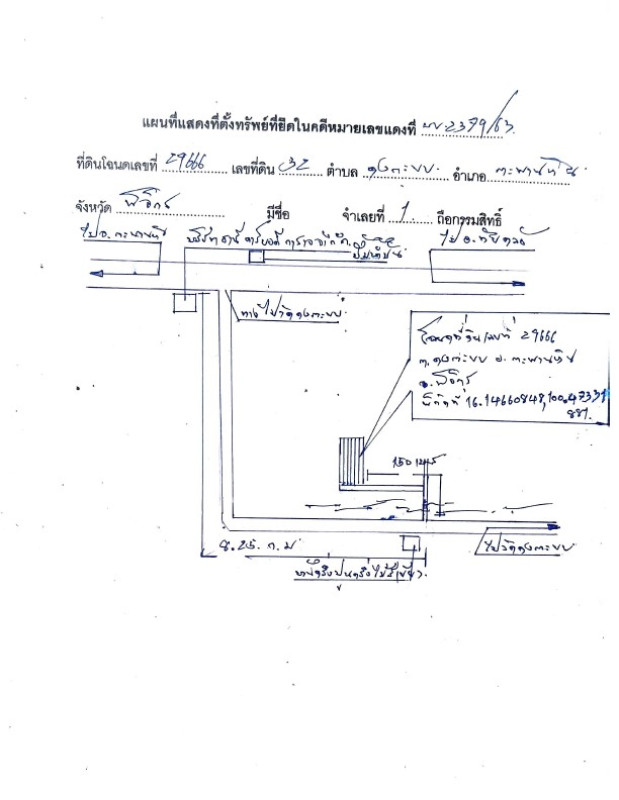 แผนที่แสดงที่ตั้งทรัพย์ที่ยึดในคดีหมายเลขแดงที่ ผบ.2379/63
ที่ดินโฉนดเลขที่ 29666 เลขที่ดิน 32 ตำบล ดงตะขบ อำเภอ ตะพานหิน
จังหวัด พิจิตร มีชื่อ จำเลยที่ 1 ถือกรรมสิทธิ์
ไป อ.ตะพานหิน
ปั๊มน้ำมัน
ไป อ.ทับคล้อ
ทางไปวัดดงตะขบ
โฉนดที่ดินเลขที่ 29666
ต.ดงตะขบ อ.ตะพานหิน
จ.พิจิตร
พิกัดที่ 16.14660848,100.47331
881.
150 เมตร
8.25 ก.ม
ไปวัดดงตะขบ